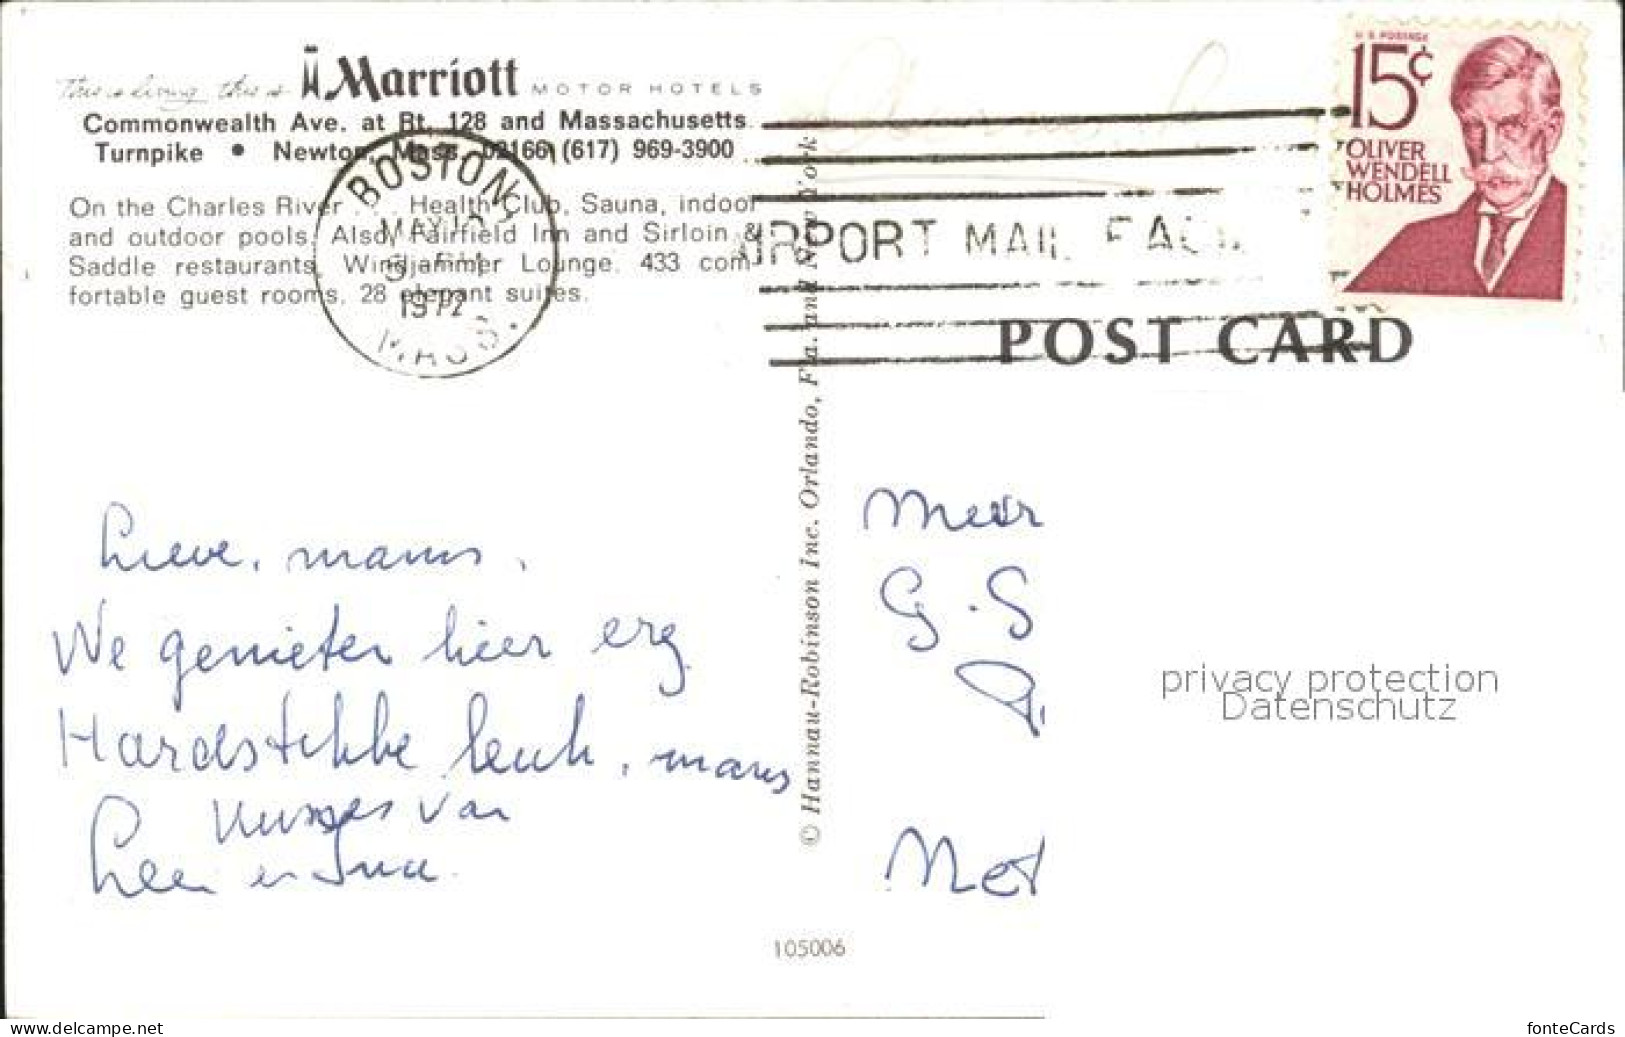 This is living, this is Marriott MOTOR HOTELS
Commonwealth Ave. at Rt. 128 and Massachusetts
Turnpike • Newton, Mass. 02166 (617) 969-3900
On the Charles River . . . Health Club, Sauna, indoor
and outdoor pools. Also, Fairfield Inn and Sirloin &
Saddle restaurants, Windjammer Lounge. 433 com-
fortable guest rooms. 28 elegant suites.
BOSTON
MAY
PM
1972
MASS.
AIRPORT MAIL FAC
U.S. POSTAGE
15¢
OLIVER
WENDELL
HOLMES
POST CARD
© Hannau-Robinson Inc. Orlando, Fla. and New York
Lieve, mams,
We genieten hier erg
Hardstikke leuk, mams
Kusjes van
Leen en
G. S
privacy protection
Datenschutz
105006
www.delcampe.net
fonteCards